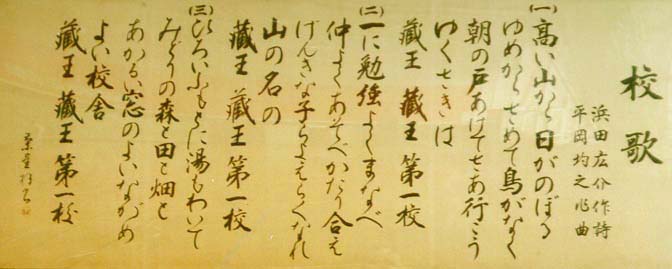 校歌
浜田広介作詩
平岡均之作曲
(一)高い山から日がのぼる
ゆめからさめて鳥がなく
朝の戸あけてさあ行こう
ゆくさきは
蔵王 蔵王第一校
(二)一に勉強よくまなべ
仲よくあそべかたり合え
げんきな子らよえらくなれ
山の名の
蔵王 蔵王第一校
(三)ひろいふもとに湯もわいて
みどりの森と田と畑と
あかるい窓のよいながめ
よい校舎
蔵王 蔵王第一校